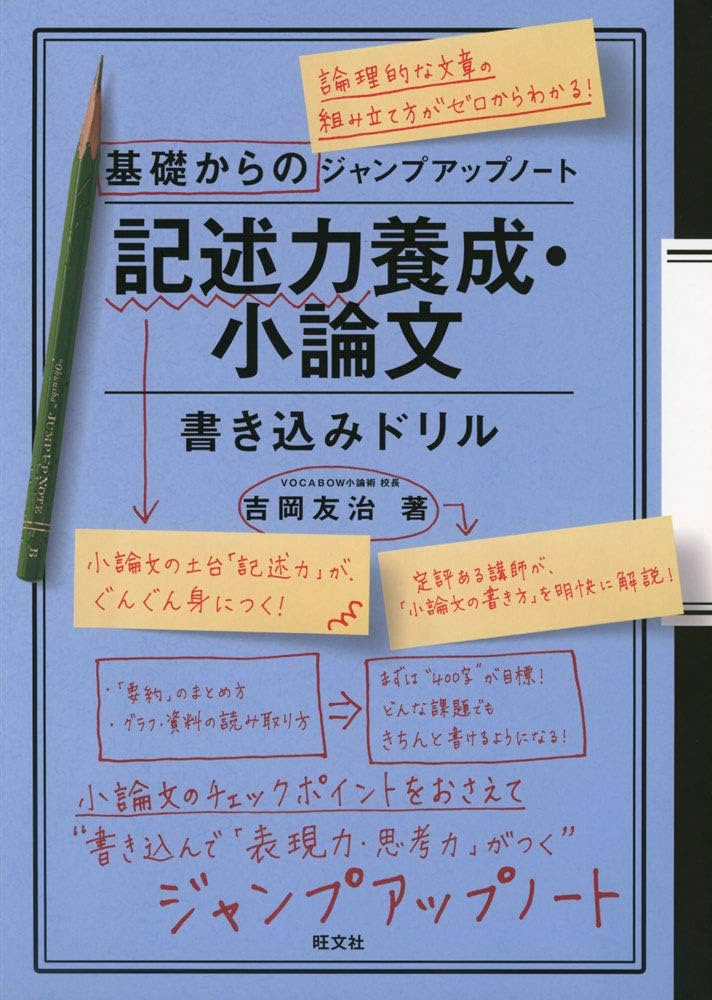 論理的な文章の
組み立て方がゼロからわかる!
基礎からのジャンプアップノート
記述力養成・
小論文
書き込みドリル
VOCABOW小論術 校長
吉岡友治 著
"Obunsha" JUMP UP NOTE B
小論文の土台「記述力」が、
ぐんぐん身につく!
定評ある講師が、
「小論文の書き方」を明快に解説!
・「要約」のまとめ方
・グラフ・資料の読み取り方
まずは“400字”が目標!
どんな課題でも
きちんと書けるようになる!
小論文のチェックポイントをおさえて
“書き込んで「表現力・思考力」がつく”
ジャンプアップノート
旺文社